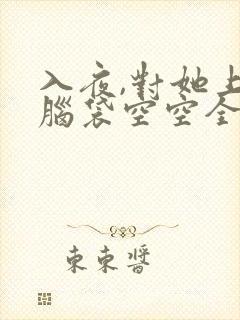 入夜,對她上
腦袋空空全
束束醬